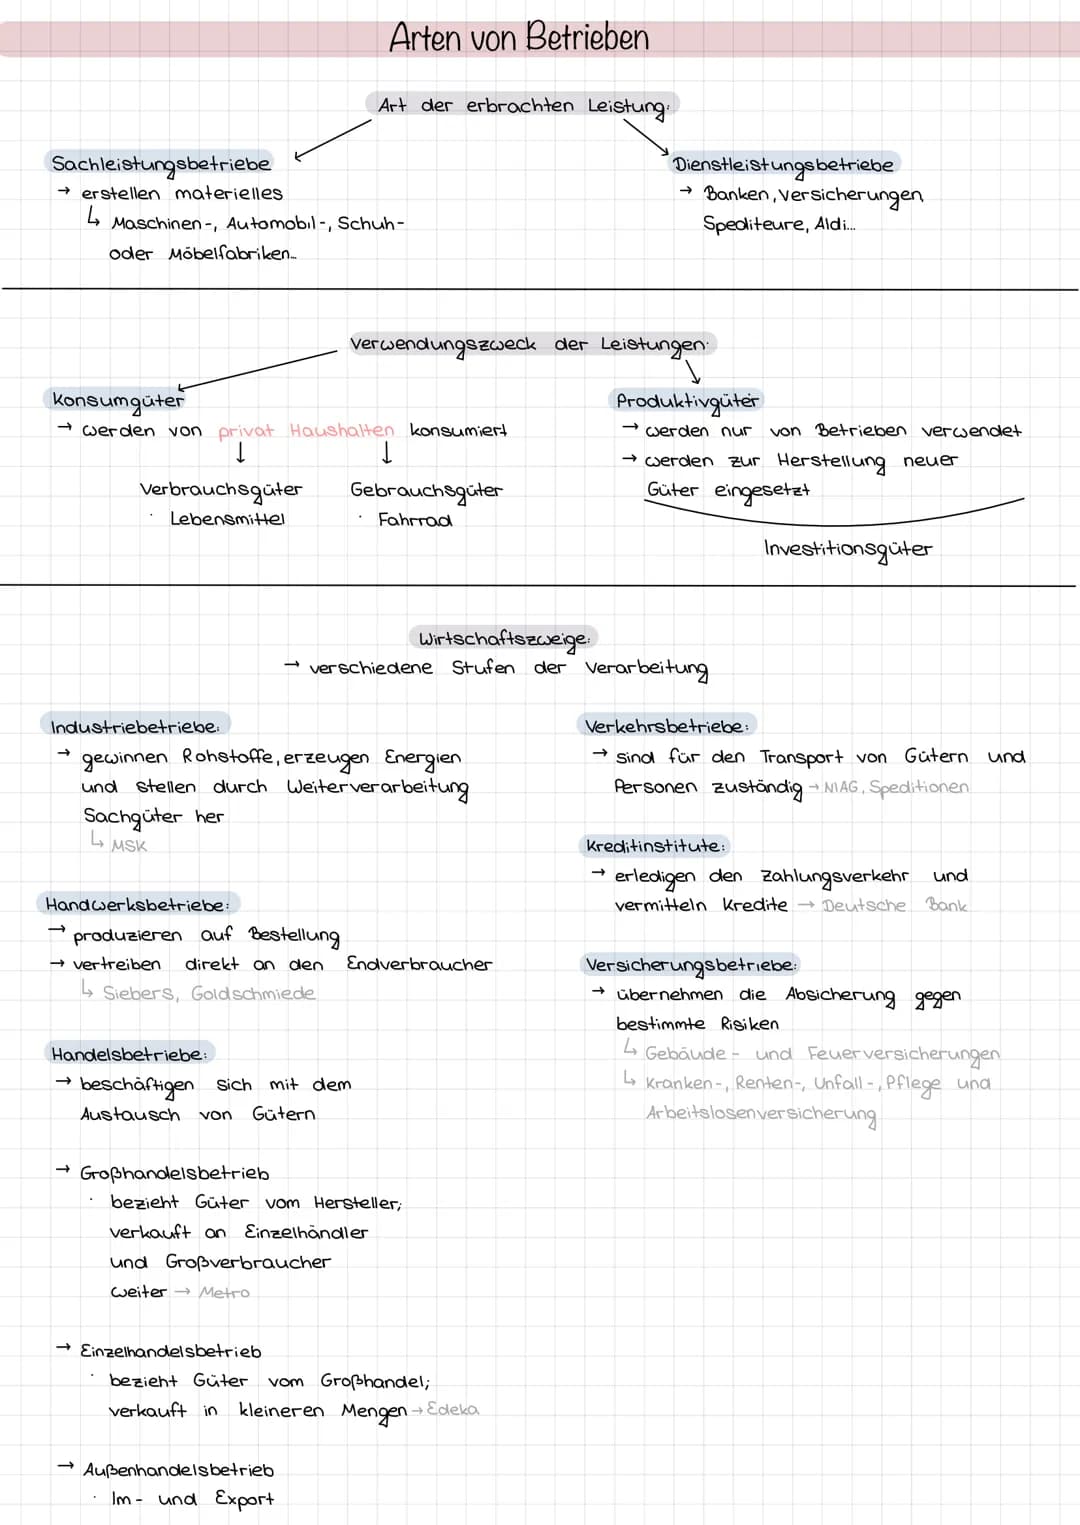 Arten von Betrieben
Art der erbrachten Leistung:
Sachleistungsbetriebe
→ erstellen materielles
↳ Maschinen-, Automobil-, Schuh-
oder Möbelfabriken...
Dienstleistungsbetriebe
→ Banken, Versicherungen,
Spediteure, Aldi...
Verwendungszweck der Leistungen:
Konsumgüter
→ werden von privat Haushalten konsumiert
↓ ↓
Verbrauchsgüter Gebrauchsgüter
· Lebensmittel · Fahrrad
Produktivgüter
→ werden nur von Betrieben verwendet
→ werden zur Herstellung neuer
Güter eingesetzt
Investitionsgüter
Wirtschaftszweige:
→ verschiedene Stufen der Verarbeitung
Industriebetriebe:
→ gewinnen Rohstoffe, erzeugen Energien
und stellen durch Weiterverarbeitung
Sachgüter her
↳ MSK
Handwerksbetriebe:
→ produzieren auf Bestellung
→ vertreiben direkt an den Endverbraucher
↳ Siebers, Goldschmiede
Handelsbetriebe:
→ beschäftigen sich mit dem
Austausch von Gütern
→ Großhandelsbetrieb
· bezieht Güter vom Hersteller;
verkauft an Einzelhändler
und Großverbraucher
weiter → Metro
→ Einzelhandelsbetrieb
· bezieht Güter vom Großhandel;
verkauft in kleineren Mengen → Edeka
→ Außenhandelsbetrieb
· Im- und Export
Verkehrsbetriebe:
→ sind für den Transport von Gütern und
Personen zuständig → NIAG, Speditionen
Kreditinstitute:
→ erledigen den Zahlungsverkehr und
vermitteln Kredite → Deutsche Bank
Versicherungsbetriebe:
→ übernehmen die Absicherung gegen
bestimmte Risiken
↳ Gebäude- und Feuerversicherungen
↳ Kranken-, Renten-, Unfall-, Pflege und
Arbeitslosenversicherung